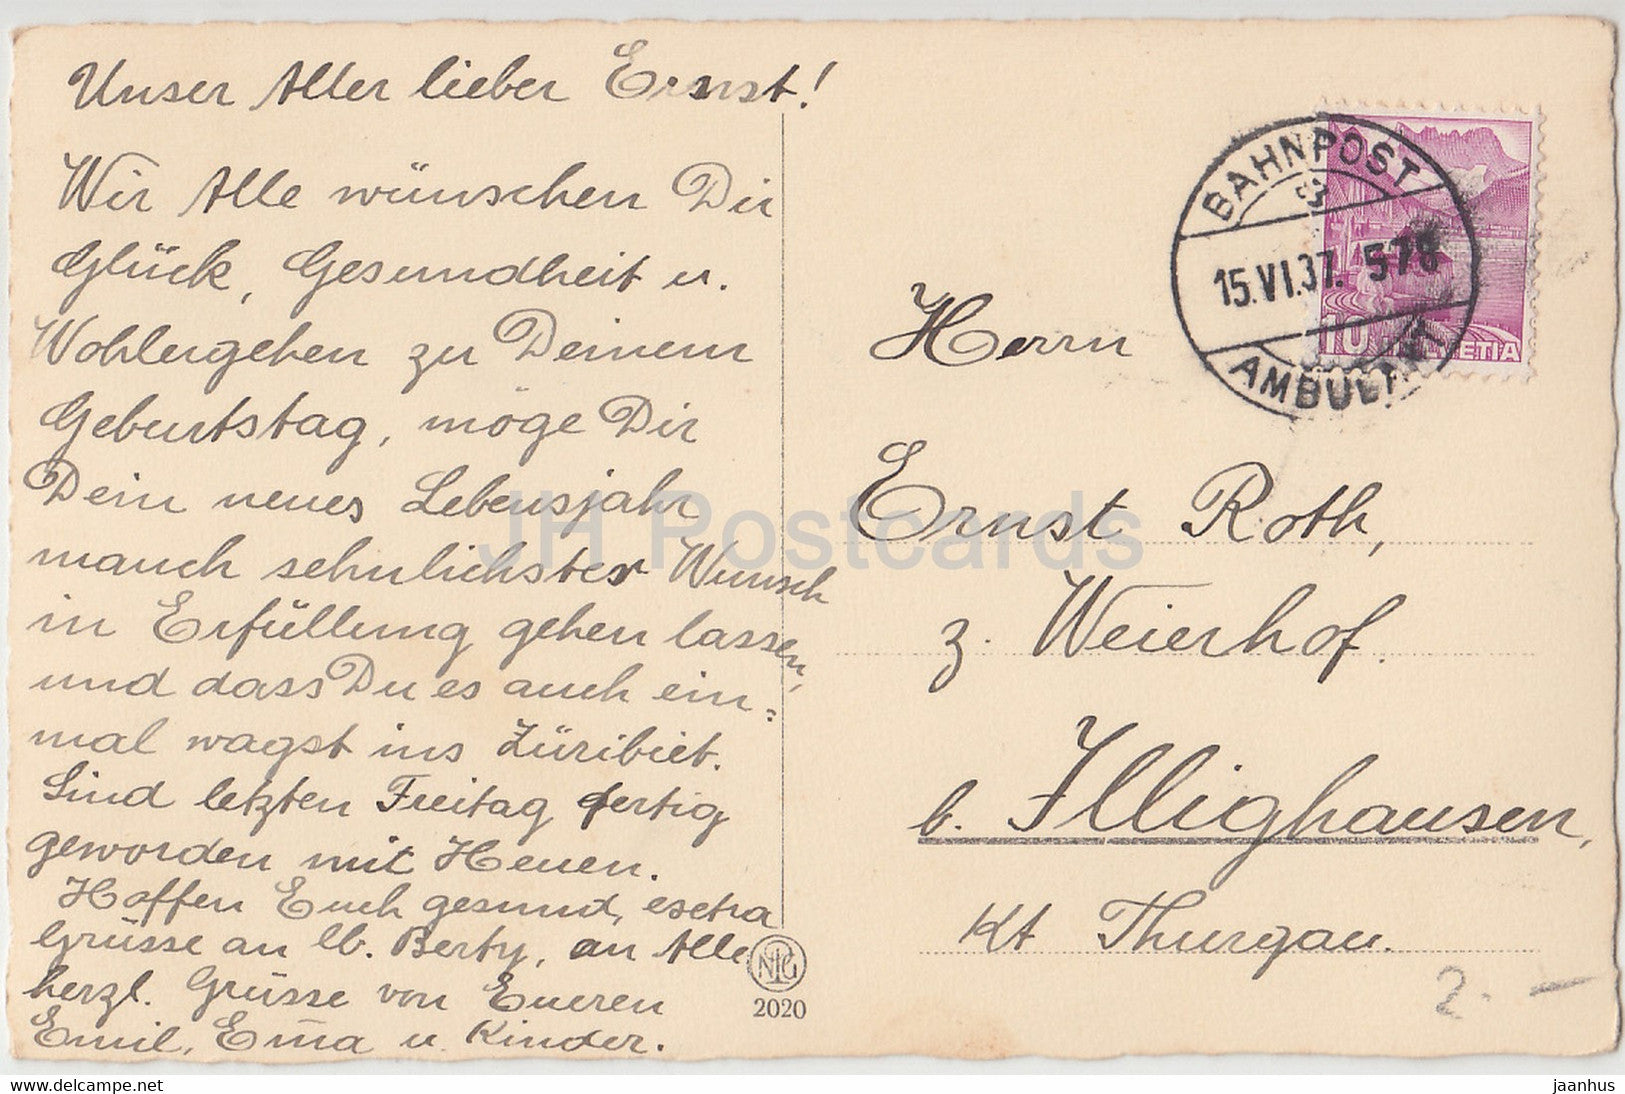 Unser Aller lieber Ernst!
Wir Alle wünschen Dir
Glück, Gesundheit u.
Wohlergehen zu Deinem
Geburtstag, möge Dir
Dein neues Lebensjahr
manch sehnlichster Wunsch
in Erfüllung gehen lassen,
und dass Du es auch ein=
mal wagst ins Züribiet.
Sind letzten Freitag fertig
geworden mit Heuen.
Hoffen Euch gesund, esctra
Grüsse an lb. Berty, an Alle
herzl. Grüsse von Eueren
Emil, Em̅a u. Kinder.
NPG
2020
BAHNPOST
15.VI.37. 578
AMBULANT
10 HELVETIA
Herrn
Ernst Roth,
z. Weierhof.
b. Illighausen,
Kt Thurgau.
2.-
JH Postcards
www.delcampe.net
jaanhus